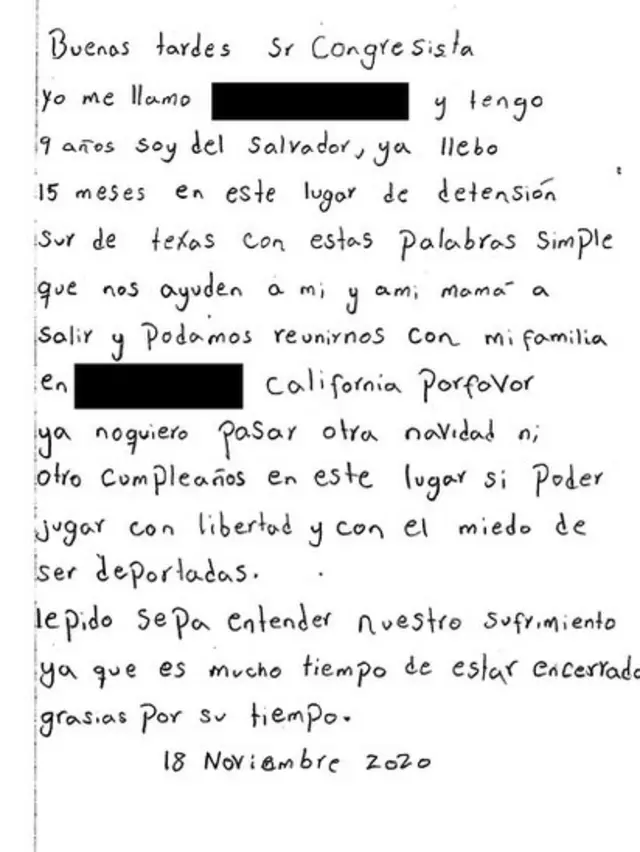 Buenas tardes Sr Congresista
Yo me llamo y tengo
9 años soy del Salvador, ya llebo
15 meses en este lugar de detensión
Sur de texas con estas palabras simple
que nos ayuden a mi y ami mamá a
Salir y Podamos reunirnos con mi familia
en California Porfavor
ya noquiero pasar otra navidad ni
otro cumpleaños en este lugar si poder
jugar con libertad y con el miedo de
ser deportadas.
le pido sepa entender nuestro sufrimiento
ya que es mucho tiempo de estar encerrado
grasias por su tiempo.
18 Noviembre 2020